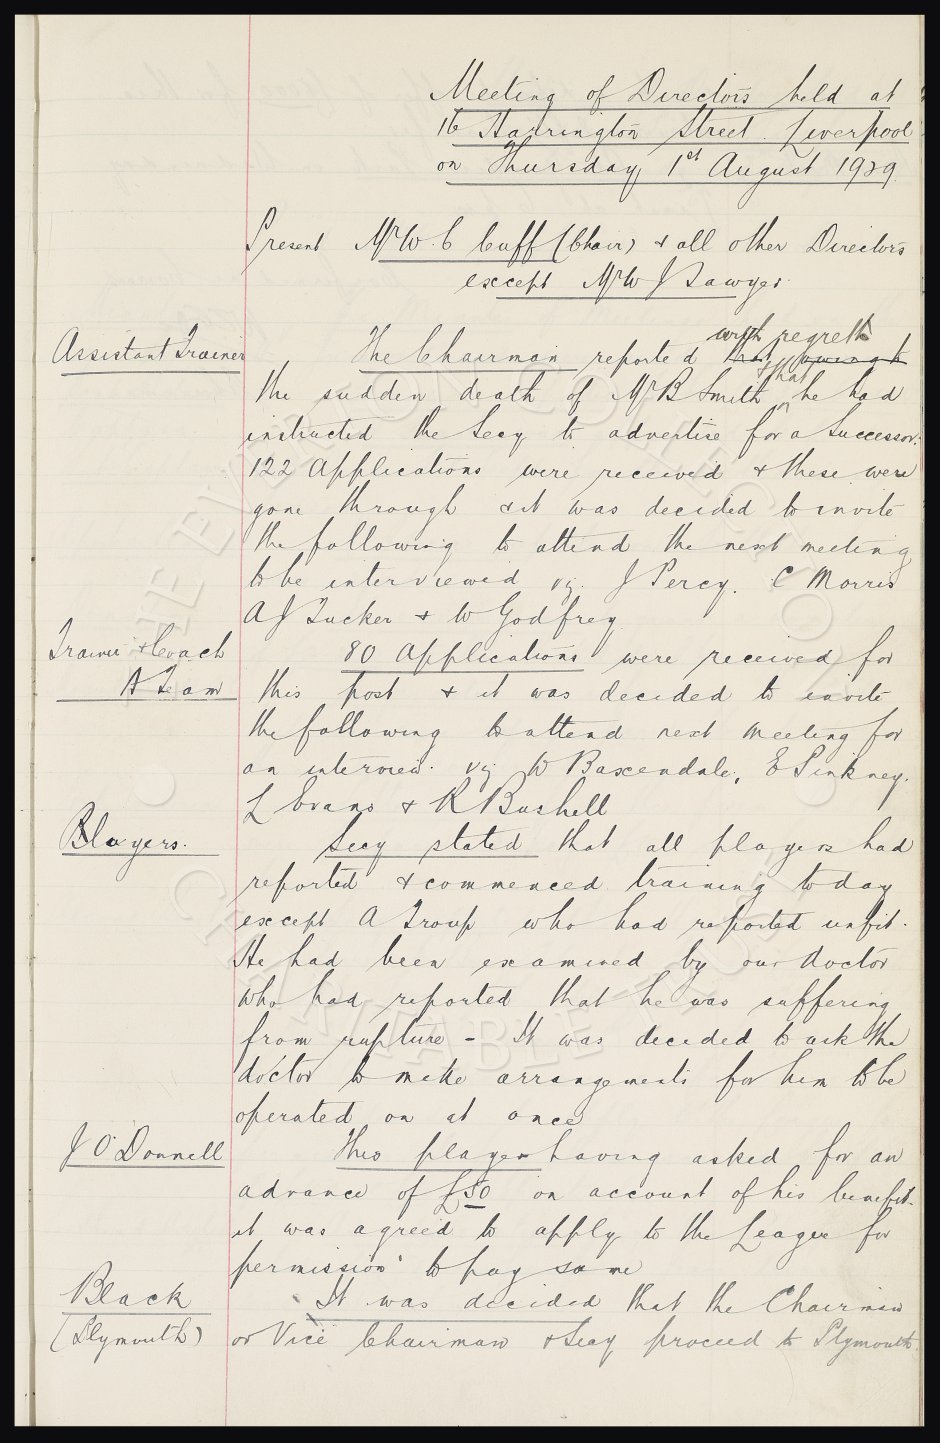 Meeting of Directors held at
16 Harrington Street. Liverpool
on Thursday 1st August 1929
Present Mr W. C Cuff (Chair) & all other Directors
except Mr W J Sawyer.
Assistant Trainer
with regret
The Chairman reported that owing to
the sudden death of Mr B Smith & that he had
instructed the Secy to advertise for a Successor.
122 Applications were received & these were
gone through & it was decided to invite
the following to attend the next meeting
to be interviewed viz. J Percy. C Morris
A J Tucker & W Godfrey
Trainer & Coach
A Team
80 Applications were received for
this post & it was decided to invite
the following to attend next meeting for
an interview. viz W Baxendale, E Pinkney.
L Evans & R Bushell
Players.
Secy stated that all players had
reported & commenced training today
except A Troup who had reported unfit.
He had been examined by our doctor
who had reported that he was suffering
from rupture - It was decided to ask the
doctor to make arrangements for him to be
operated on at once
J O'Donnell
This player having asked for an
advance of £50 on account of his benefit
it was agreed to apply to the League for
permission to pay same
Black
(Plymouth)
It was decided that the Chairman
or Vice Chairman & Secy proceed to Plymouth.
THE EVERTON COLLECTION
CHARITABLE TRUST